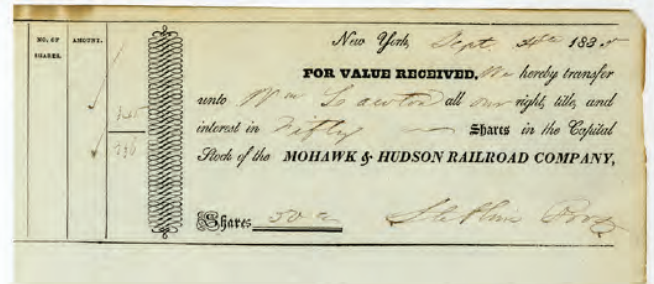 NO. OF SHARES.
AMOUNT.
New York, Sept. 183
FOR VALUE RECEIVED, We hereby transfer
unto Wm Lawton all our right, title, and
interest in Fifty Shares in the Capital
Stock of the MOHAWK & HUDSON RAILROAD COMPANY,
Shares 50